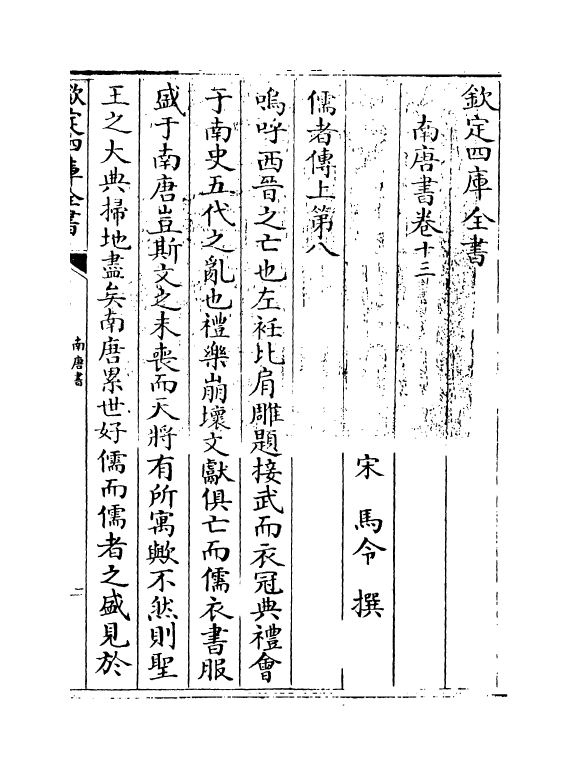 欽定四庫全書
南唐書卷十三
宋 馬令 撰
儒者傳上第八
嗚呼西晉之亡也左衽比肩雕題接武而衣冠典禮會
于南史五代之亂也禮樂崩壞文獻俱亡而儒衣書服
盛于南唐豈斯文之未喪而天將有所寓歟不然則聖
王之大典掃地盡矣南唐累世好儒而儒者之盛見於
欽定四庫全書
南唐書
一